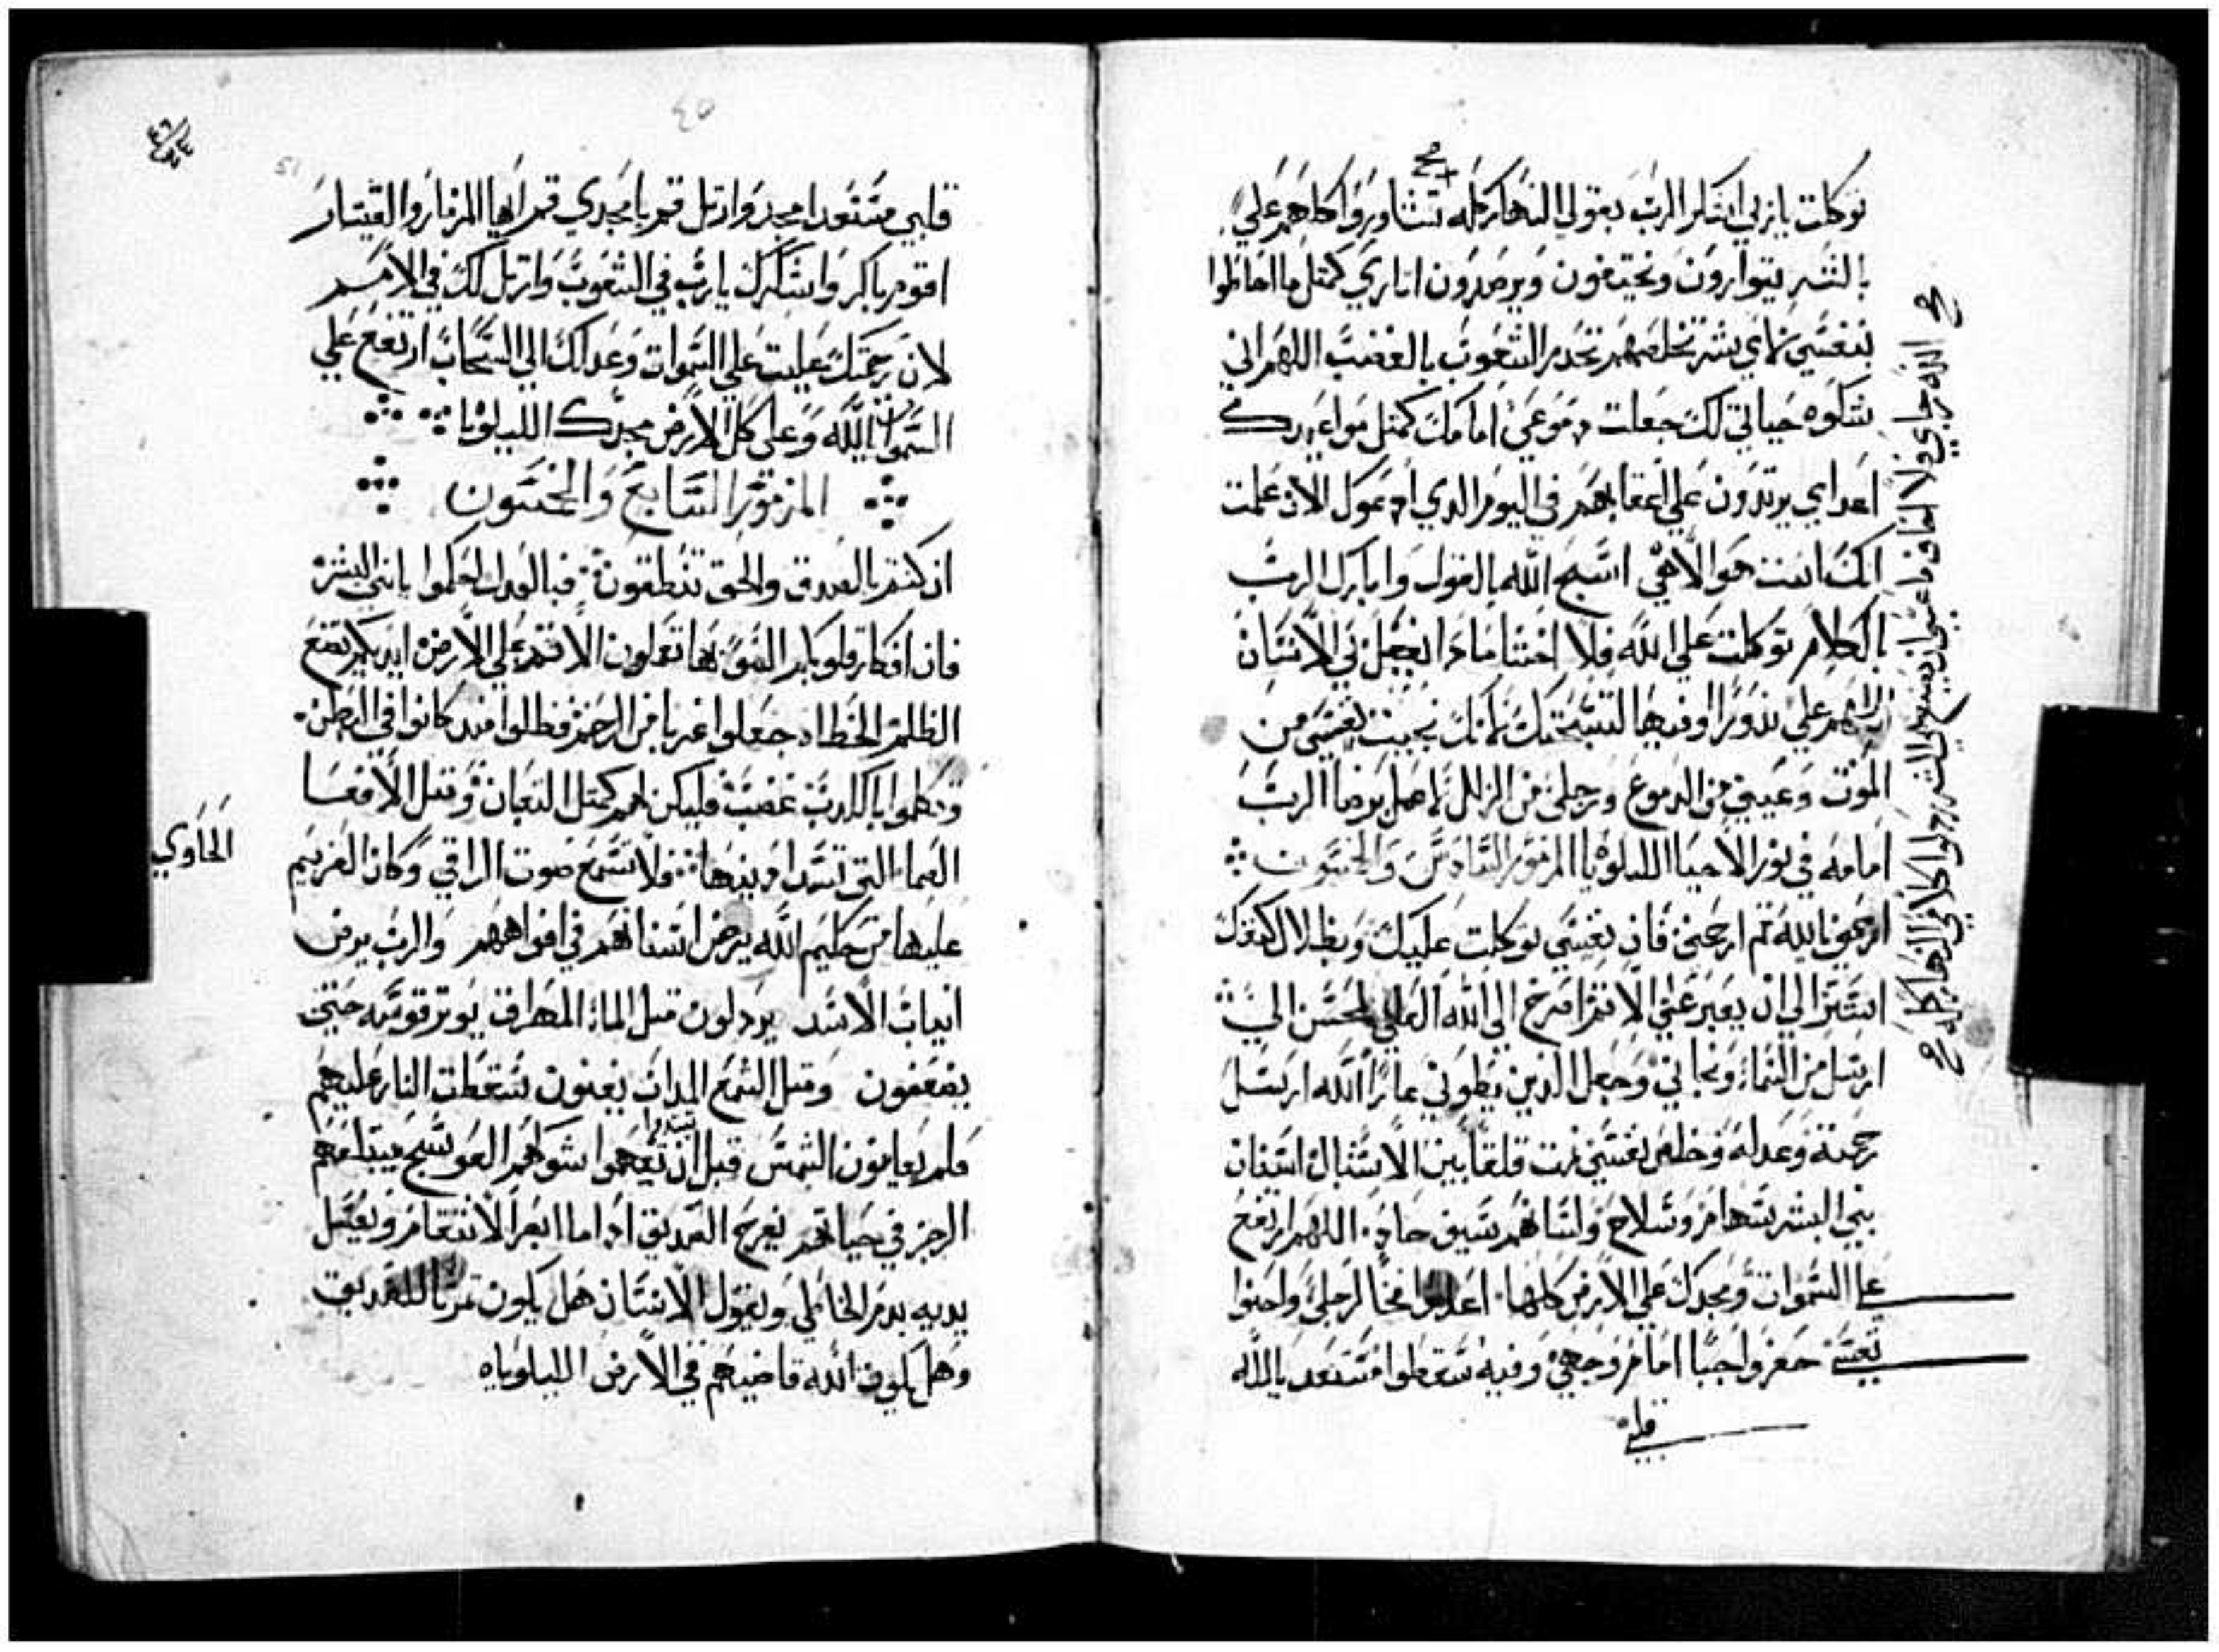 توكلت يا رب اشكر الرب بقولي النهار كله تشاوروا كلهم علي
بالشر يتوارون ويختفون ويرصدون اثاري كمثل ما احاطوا
بنفسي باي بشر تخلصهم تحدر الشعوب بالغضب اللهم اني
شكوه حياتي لك جعلت دموعي امامك كمثل مواعيدك
اعداي يرتدون علي اعقابهم في اليوم الدي ادعوك الان علمت
انك انت هو الاهي اسبح الله بالقول وابارك الرب
بالكلام توكلت علي الله فلا اخشا مادا يفعل بي الانسان
اللهم علي ندورا اوفيها لتسبحتك لانك نجيت نفسي من
الموت وعيني من الدموع ورجلي من الزلل لاعمل برضا الرب
امامه في نور الاحيا الليلويا المزمور السادس والخمسون
ارحمني يا الله تم ارحمني فان نفسي توكلت عليك وبظلال كنفك
استتر الي ان يعبر عني الاتم اصرخ الي الله العلي المحسن الي
ارسل من السماء ونجاني وجعل الدين يطوني عارا الله ارسل
رحمته وعدله وخلص نفسي نمت قلقا بين الاشبال اسنان
بني البشر سهام وسلاح ولسانهم سيف حاد اللهم ارتفع
علي السموات ومجدك علي الارض كلها اعدوا فخا لرجلي واحنوا
نفسي حفروا جبا امام وجهي وفيه سقطوا مستعد يا الله
قلبي
صح الله رجاي فلا اخاف ما عسي ان يصنع بي البشر ردلوا كلامي النهار كله صح
٤٥
51
قلبي مستعدا امجد وارتل قم يا مجدي قم ايها المزمار والقيتار
اقوم باكر واشكرك يا رب في الشعوب وارتل لك في الامم
لان رحمتك عليت علي السموات وعدلك الي السحاب ارتفع علي
السموات الله وعلي كل الارض مجدك الليلويا
المزمور السابع والخمسون
ان كنتم بالصدق والحق تنطقون فبالعدل احكموا يا بني البشر
فان افكار قلوبكم السو بها تعملون الاتم علي الارض ايديكم تصنع
الظلم الخطاه جعلوا غربا من الرحم فظلوا مند كانوا في البطن
وتكلموا بالكدب غضب فليكن لهم كمتل التعبان ومتل الافعا
الصما التي تسد ادنيها فلا تسمع صوت الراقي وكان العزيم
الحاوي
عليها من حكيم الله يرض اسنانهم في افواههم والرب يرض
انياب الاسد يردلون متل الماء المهراق يوتر قوسه حتي
يضعفون ومتل الشمع المداب يفنون سقطت النار عليهم
فلم يعاينون الشمس قبل ان تفهموا شوكهم العوسج يبتلعهم
الرجز في حياتهم يفرح الصديق ادا ما ابصر الانتقام ويغسل
يديه بدم الخاطي ويقول الانسان هل يكون تمرتا للصديق
وهل يكون الله قاضيهم في الارض الليلوياه